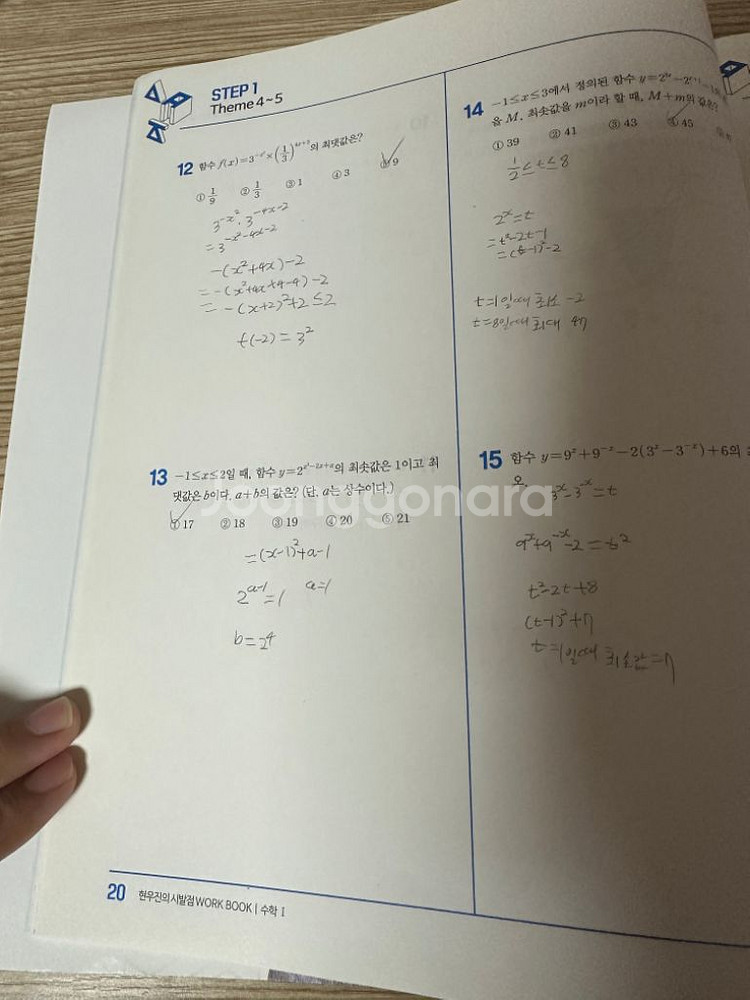 STEP 1
Theme 4~5
12 함수 f(x)=3^{-x²}×(1/3)^{4x+2}의 최댓값은?
① 1/9 ② 1/3 ③ 1 ④ 3 ⑤ 9
3^{-x²}·3^{-4x-2}
=3^{-x²-4x-2}
-(x²+4x)-2
=-(x²+4x+4-4)-2
=-(x+2)²+2≤2
f(-2)=3²
13 -1≤x≤2일 때, 함수 y=2^{x²-2x+a}의 최솟값은 1이고 최
댓값은 b이다. a+b의 값은? (단, a는 상수이다.)
① 17 ② 18 ③ 19 ④ 20 ⑤ 21
=(x-1)²+a-1
2^{a-1}=1 a=1
b=2⁴
14 -1≤x≤3에서 정의된 함수
을 M, 최솟값을 m이라 할 때, M+m의 값은?
① 39 ② 41 ③ 43 ④ 45
1/2≤t≤8
2^x=t
=t²-2t-1
=(t-1)²-2
t=1일때 최소 -2
t=8일때 최대 47
15 함수 y=9^x+9^{-x}-2(3^x-3^{-x})+6의
3^x-3^{-x}=t
9^x+9^{-x}-2=t²
t²-2t+8
(t-1)²+7
t=1일때 최솟값=7
Joonggonara
20 현우진의 시발점 WORK BOOK | 수학 Ⅰ